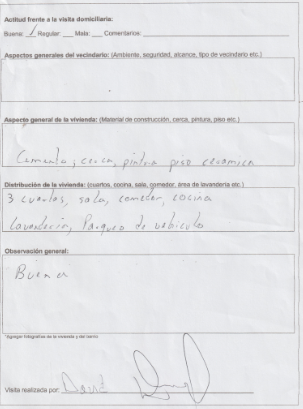 Actitud frente a la visita domiciliaria:
Buena: / Regular: ___ Mala: ___ Comentarios: ___
Aspectos generales del vecindario: (Ambiente, seguridad, alcance, tipo de vecindario etc.)
Aspecto general de la vivienda: (Material de construcción, cerca, pintura, piso etc.)
Cemento, cerca, pintura piso ceramica
Distribución de la vivienda: (cuartos, cocina, sala, comedor, área de lavandería etc.)
3 cuartos, sala, comedor, cocina
lavanderia, Parqueo de vehiculo
Observación general:
Buena
*Agregar fotografías de la vivienda y del barrio
Visita realizada por: David